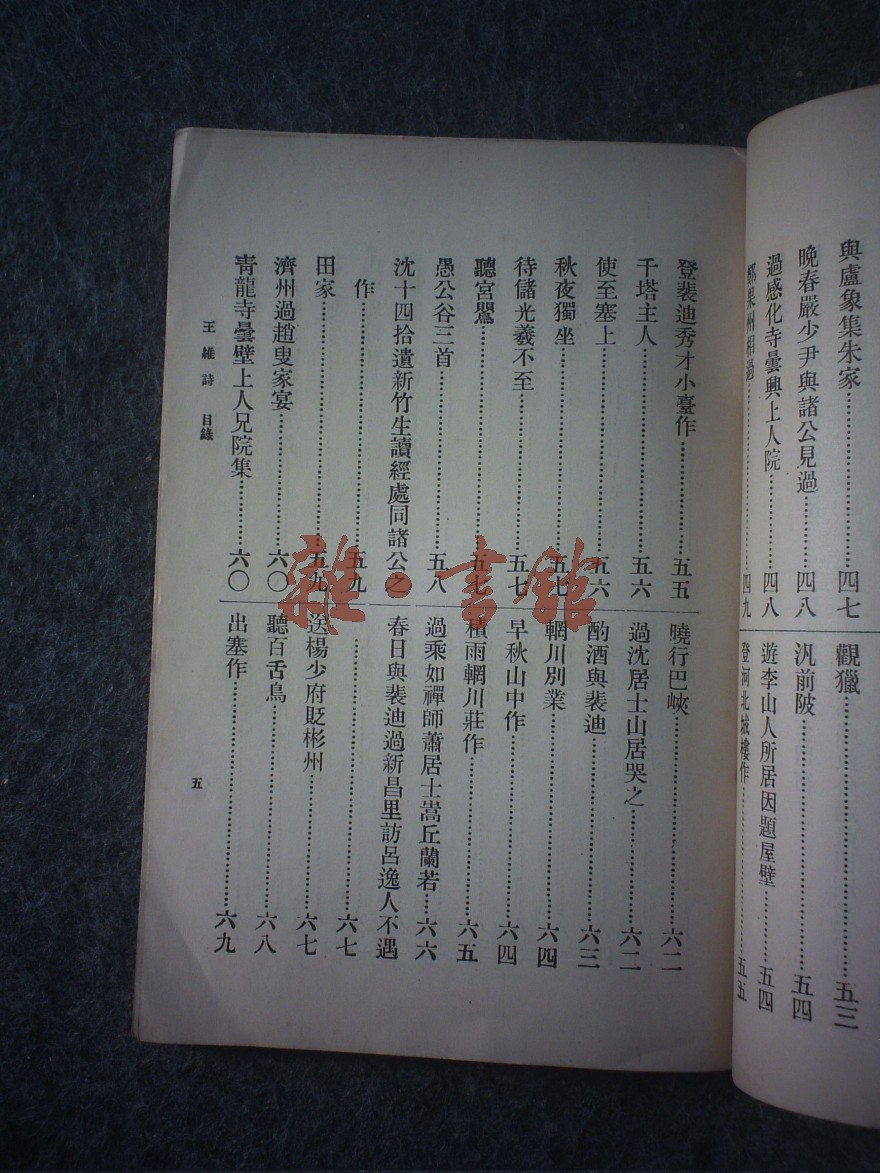 與盧象集朱家……四七
晚春嚴少尹與諸公見過……四八
過感化寺曇興上人院……四八
鄭果州相過……四九
觀獵……五三
汎前陂……五四
遊李山人所居因題屋壁……五四
登河北城樓作……五五
登裴迪秀才小臺作……五五
千塔主人……五六
使至塞上……五六
秋夜獨坐……五七
待儲光羲不至……五七
聽宮鶯……五七
愚公谷三首……五八
沈十四拾遺新竹生讀經處同諸公之
作……五九
田家……五九
濟州過趙叟家宴……六〇
青龍寺曇壁上人兄院集……六〇
曉行巴峽……六二
過沈居士山居哭之……六二
酌酒與裴迪……六三
輞川別業……六四
早秋山中作……六四
積雨輞川莊作……六五
過乘如禪師蕭居士嵩丘蘭若……六六
春日與裴迪過新昌里訪呂逸人不遇
……六七
送楊少府貶郴州……六七
聽百舌鳥……六八
出塞作……六九
王維詩 目錄
五
雜·書館